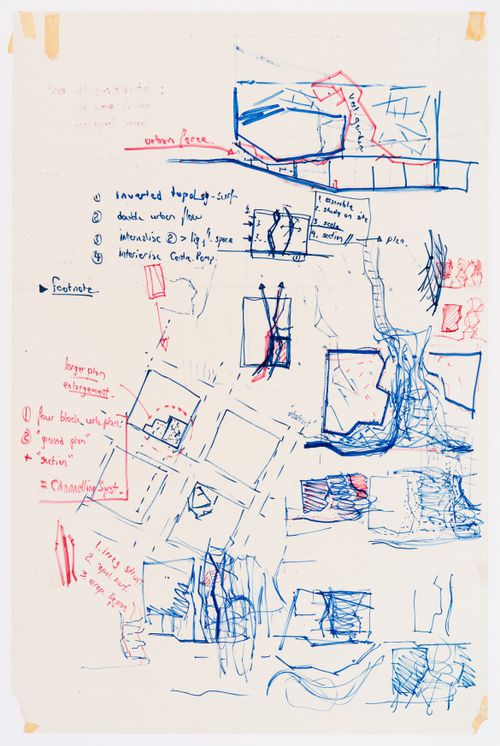 urban force
Vert. garden
① inverted topology-Surf.
② double urban flow
③ internalise ② > lig/. space
④ interiorise Centr. Pomp.
1. assemble
2. study on site
3. scale
4. section
plan.
► footnote
larger plan
enlargement.
① four block urb. plan.
② "ground plan"
+ "section"
= Channelling Syst.
1. irreg. struct
2. topol. surf.
3. wrap.